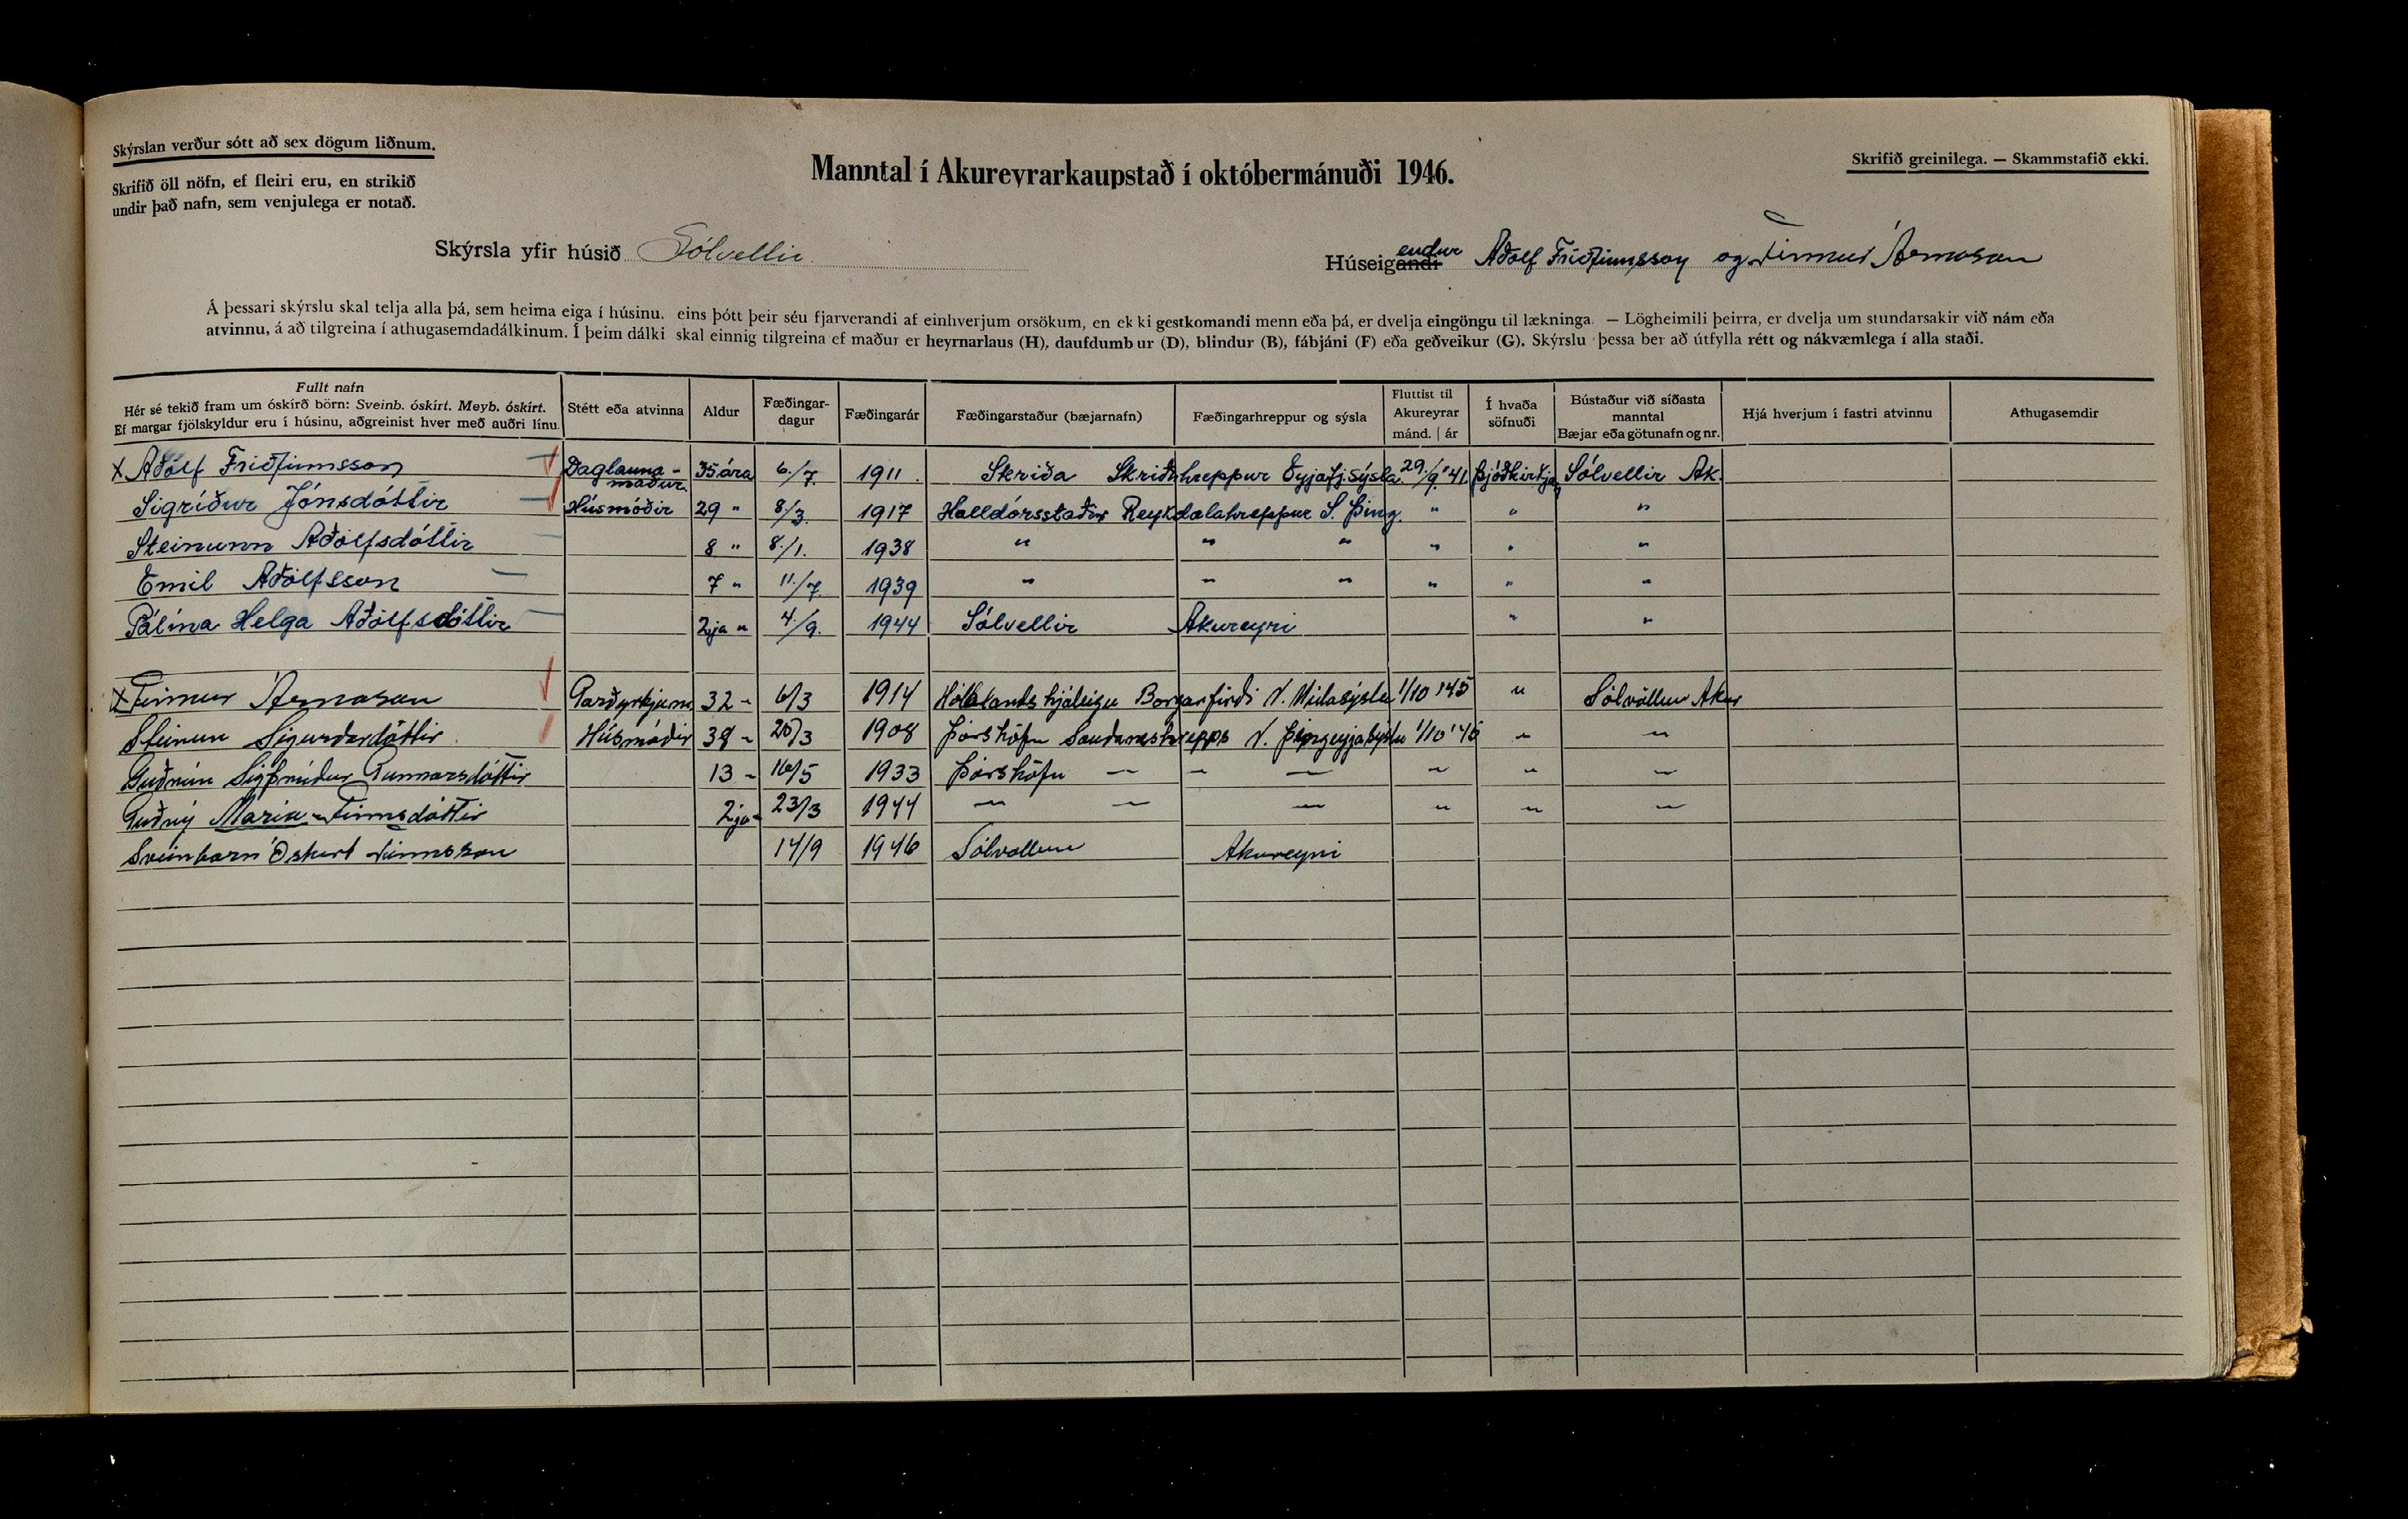 Skýrslan verður sótt að sex dögum liðnum.
Skrifið öll nöfn, ef fleiri eru, en strikið
undir það nafn, sem venjulega er notað.
Manntal í Akureyrarkaupstað í októbermánuði 1946.
Skrifið greinilega. — Skammstafið ekki.
Skýrsla yfir húsið Sólvellir
Húseigandi endur Aðolf Friðfinnsson og Finnur Árnason
Á þessari skýrslu skal telja alla þá, sem heima eiga í húsinu, eins þótt þeir séu fjarverandi af einhverjum orsökum, en ekki gestkomandi menn eða þá, er dvelja eingöngu til lækninga. — Lögheimili þeirra, er dvelja um stundarsakir við nám eða
atvinnu, á að tilgreina í athugasemdadálkinum. Í þeim dálki skal einnig tilgreina ef maður er heyrnarlaus (H), daufdumbur (D), blindur (B), fábjáni (F) eða geðveikur (G). Skýrslu þessa ber að útfylla rétt og nákvæmlega í alla staði.
Fullt nafn Hér sé tekið fram um óskírð börn: Sveinb. óskírt. Meyb. óskírt. Ef margar fjölskyldur eru í húsinu, aðgreinist hver með auðri línu. Stétt eða atvinna Aldur Fæðingar-dagur Fæðingarár Fæðingarstaður (bæjarnafn) Fæðingarhreppur og sýsla Fluttist til Akureyrar mánd. | ár Í hvaða söfnuði Bústaður við síðasta manntal Bæjar eða götunafn og nr. Hjá hverjum í fastri atvinnu Athugasemdir
x Aðólf Friðfinnsson Daglauna-maður 35 ára 6./7. 1911. Skriða Skriðuhreppur Eyjafj.sýsla 29./9.'41 Þjóðkirkja Sólvellir Ak.
Sigríður Jónsdóttir Húsmóðir 29 " 8/3. 1917 Halldórsstaðir Reykdalahreppur S. Þing. " " "
Steinunn Aðólfsdóttir 8 " 8./1. 1938 " " " " " "
Emil Aðólfsson 7 " 11./7. 1939 " " " " " "
Pálína Helga Aðólfsdóttir 2ja " 4./9. 1944 Sólvellir Akureyri " "
x Finnur Árnason Garðyrkjum. 32 " 6/3 1914 Hólalandshjáleigu Borgarfirði N. Múlasýslu 1/10 '45 " Sólvöllum Akur
Steinun Sigurðardóttir Húsmóðir 38 " 20/3 1908 Þórshöfn Sauðaneshrepps N. Þingeyjasýslu 1/10 '45 " "
Guðrún Sigþrúður Gunnarsdóttir 13 " 16/5 1933 Þórshöfn " " " " " "
Guðný María Finnsdóttir 2ja " 23/3 1944 " " " " " "
Sveinbarn Óskírt Finnsson 14/9 1946 Sólvöllum Akureyri